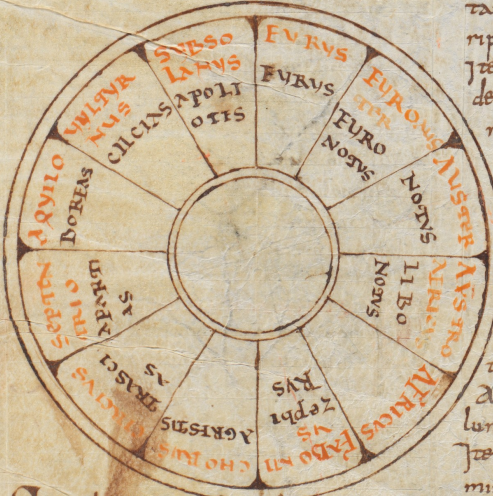 SUBSO
LANUS
APOLI
OTIS
EURUS
EURUS
EURO
AUS
TER
EURO
NOTUS
AUSTER
NOTUS
AUSTRO
AFRICUS
LIBO
NOTUS
AFRICUS
FABONI
US
ZEPhI
RUS
CHORUS
AGRISTIS
CIRCIUS
TRASCI
AS
SEPTEN
TRIO
APARTI
AS
AQUILO
BOREAS
UULTUR
NUS
CILCIAS